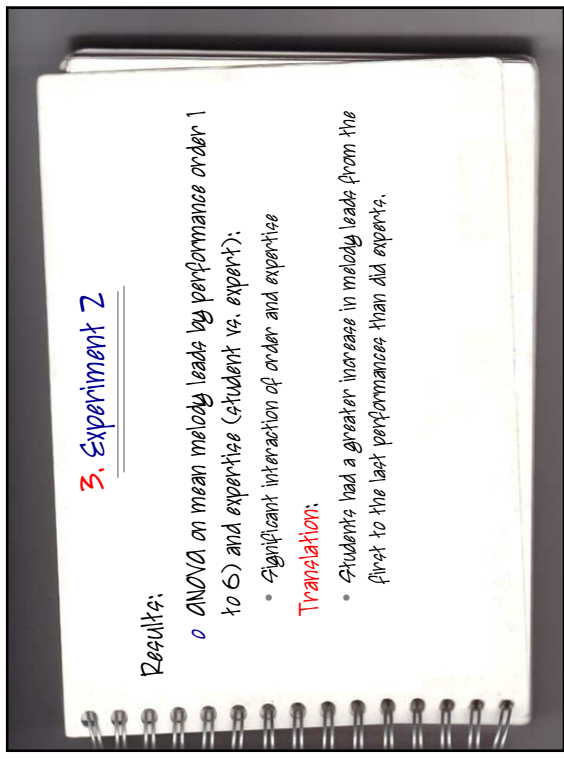 3. Experiment 2
Results:
o ANOVA on mean melody leads by performance order 1
to 6) and expertise (student vs. expert):
• Significant interaction of order and expertise
Translation:
• Students had a greater increase in melody leads from the
first to the last performances than did experts.